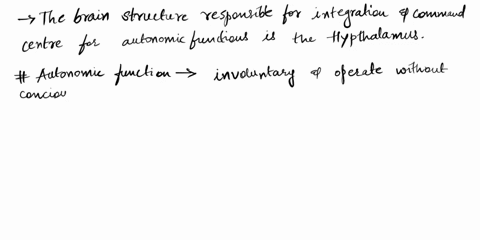 → The brain structure responsible for integration & command
centre for autonomic functions is the Hypthalamus.
# Autonomic function → involuntary & operate without
conciou